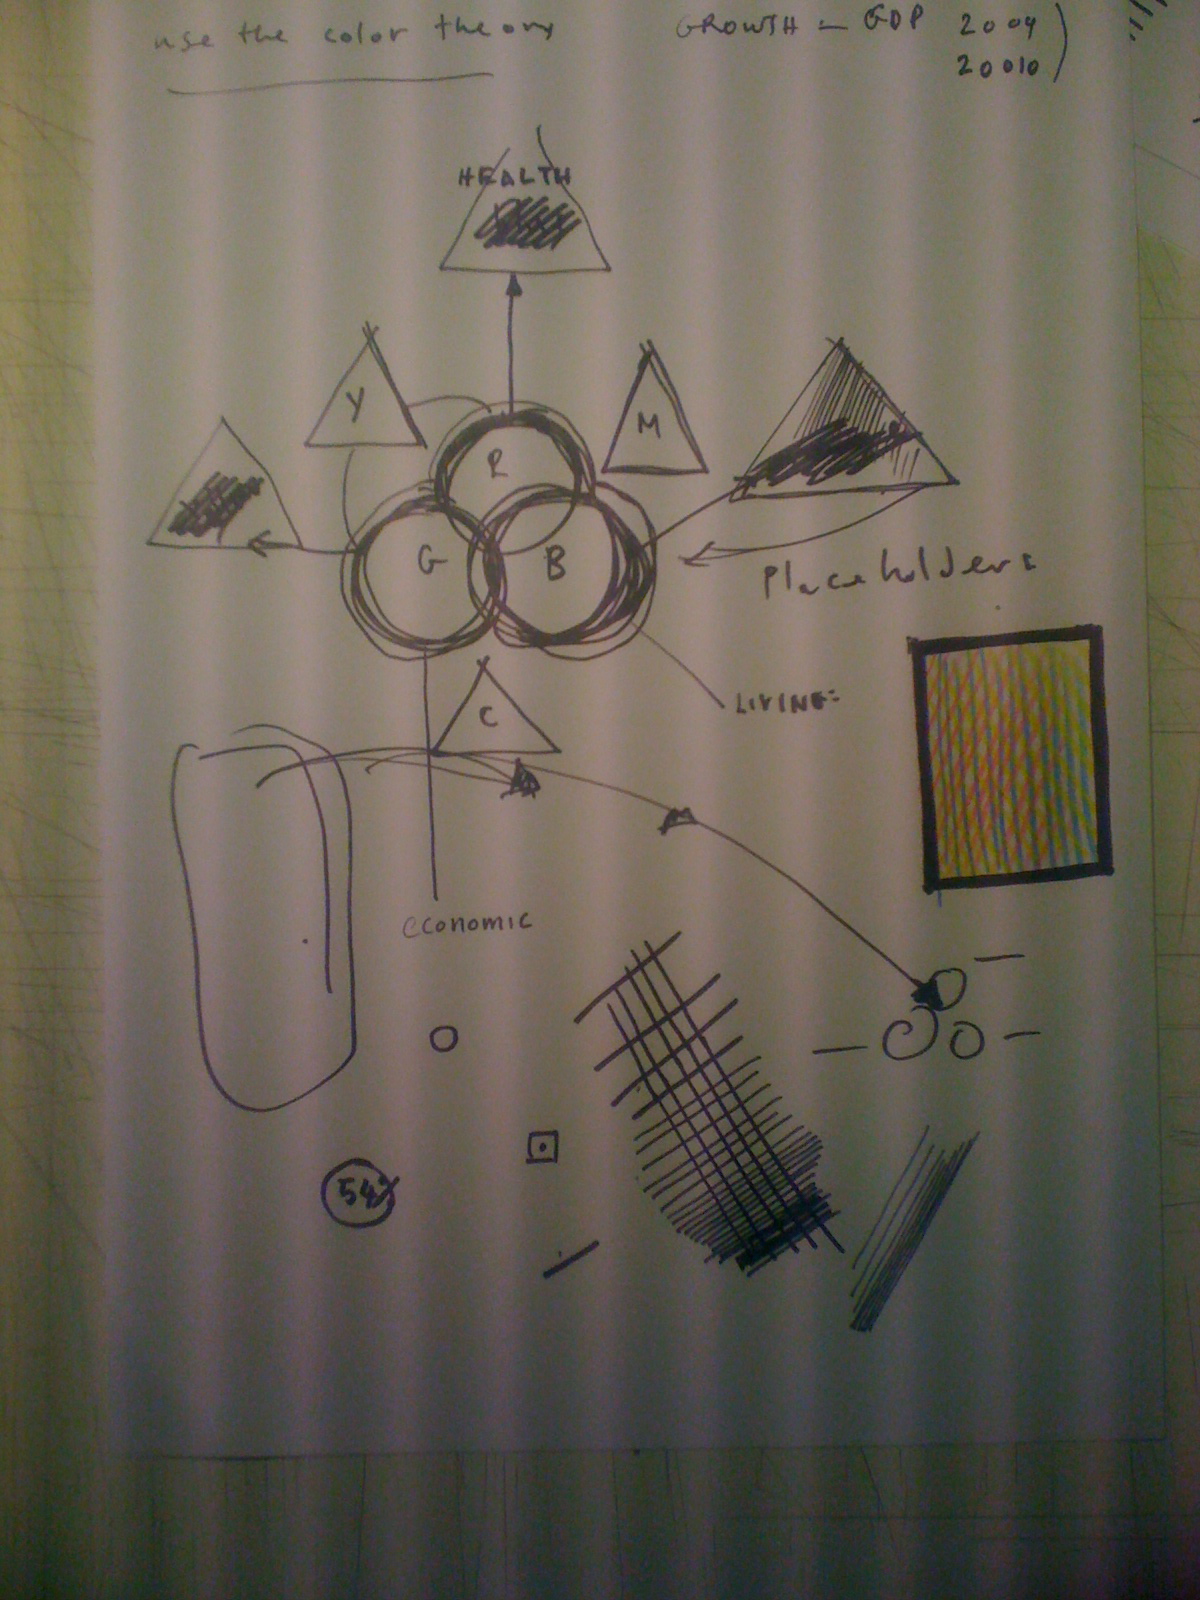 use the color theory
GROWTH - GDP 2009
20010
HEALTH
Y
M
R
G
B
Placeholders
LIVING
C
economic